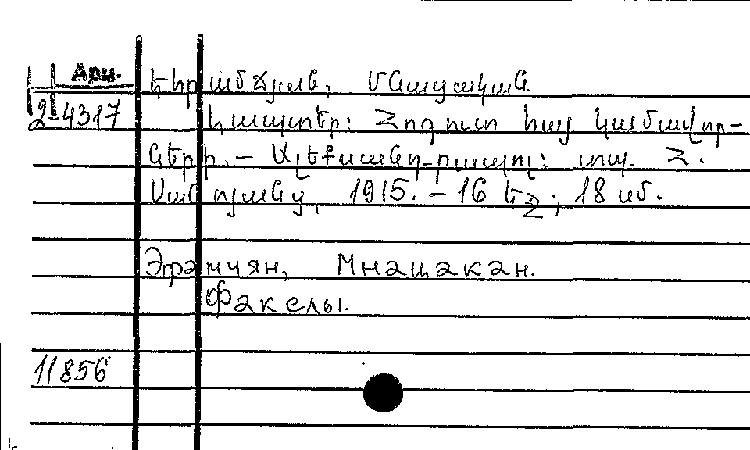 Арм.
2-4317
Էփրամճյան, Մնացական
Կապտեր: Հոգուտ հայ կամավոր-
ների. – Ալեքսանդրապոլ: տպ. Հ.
Սանոյանց, 1915. – 16 եջ; 18 սմ.
Эфрамчян, Мнацакан.
Факелы.
11856